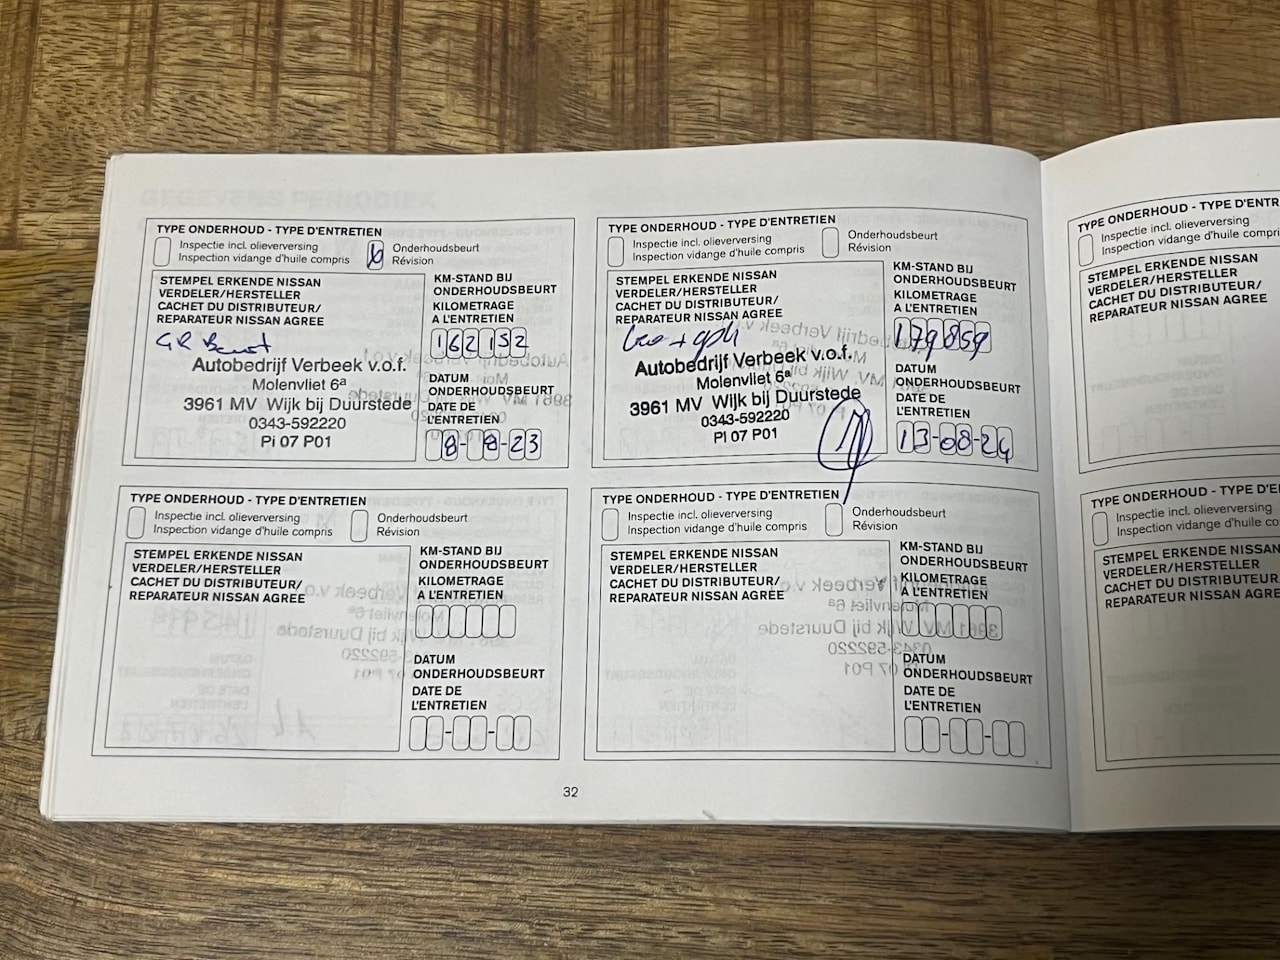 TYPE ONDERHOUD - TYPE D'ENTRETIEN
Inspectie incl. olieverversing
Inspection vidange d'huile compris
Onderhoudsbeurt
Révision
STEMPEL ERKENDE NISSAN
VERDELER/HERSTELLER
CACHET DU DISTRIBUTEUR/
REPARATEUR NISSAN AGREE
GR Beurt
Autobedrijf Verbeek v.o.f.
Molenvliet 6a
3961 MV Wijk bij Duurstede
0343-592220
Pi 07 P01
KM-STAND BIJ
ONDERHOUDSBEURT
KILOMETRAGE
A L'ENTRETIEN
162152
DATUM
ONDERHOUDSBEURT
DATE DE
L'ENTRETIEN
8-8-23
TYPE ONDERHOUD - TYPE D'ENTRETIEN
Inspectie incl. olieverversing
Inspection vidange d'huile compris
Onderhoudsbeurt
Révision
STEMPEL ERKENDE NISSAN
VERDELER/HERSTELLER
CACHET DU DISTRIBUTEUR/
REPARATEUR NISSAN AGREE
Autobedrijf Verbeek v.o.f.
Molenvliet 6a
3961 MV Wijk bij Duurstede
0343-592220
Pi 07 P01
KM-STAND BIJ
ONDERHOUDSBEURT
KILOMETRAGE
A L'ENTRETIEN
179859
DATUM
ONDERHOUDSBEURT
DATE DE
L'ENTRETIEN
13-08-24
TYPE ONDERHOUD - TYPE D'ENTRETIEN
Inspectie incl. olieverversing
Inspection vidange d'huile compris
Onderhoudsbeurt
Révision
STEMPEL ERKENDE NISSAN
VERDELER/HERSTELLER
CACHET DU DISTRIBUTEUR/
REPARATEUR NISSAN AGREE
KM-STAND BIJ
ONDERHOUDSBEURT
KILOMETRAGE
A L'ENTRETIEN
DATUM
ONDERHOUDSBEURT
DATE DE
L'ENTRETIEN
TYPE ONDERHOUD - TYPE D'ENTRETIEN
Inspectie incl. olieverversing
Inspection vidange d'huile compris
Onderhoudsbeurt
Révision
STEMPEL ERKENDE NISSAN
VERDELER/HERSTELLER
CACHET DU DISTRIBUTEUR/
REPARATEUR NISSAN AGREE
KM-STAND BIJ
ONDERHOUDSBEURT
KILOMETRAGE
A L'ENTRETIEN
DATUM
ONDERHOUDSBEURT
DATE DE
L'ENTRETIEN
32
TYPE ONDERHOUD - TYPE D'ENTR
Inspectie incl. olieverversing
Inspection vidange d'huile compri
STEMPEL ERKENDE NISSAN
VERDELER/HERSTELLER
CACHET DU DISTRIBUTEUR/
REPARATEUR NISSAN AGREE
TYPE ONDERHOUD - TYPE D'E
Inspectie incl. olieverversing
Inspection vidange d'huile
STEMPEL ERKENDE NISSAN
VERDELER/HERSTELLER
CACHET DU DISTRIBUTEUR/
REPARATEUR NISSAN AGRE